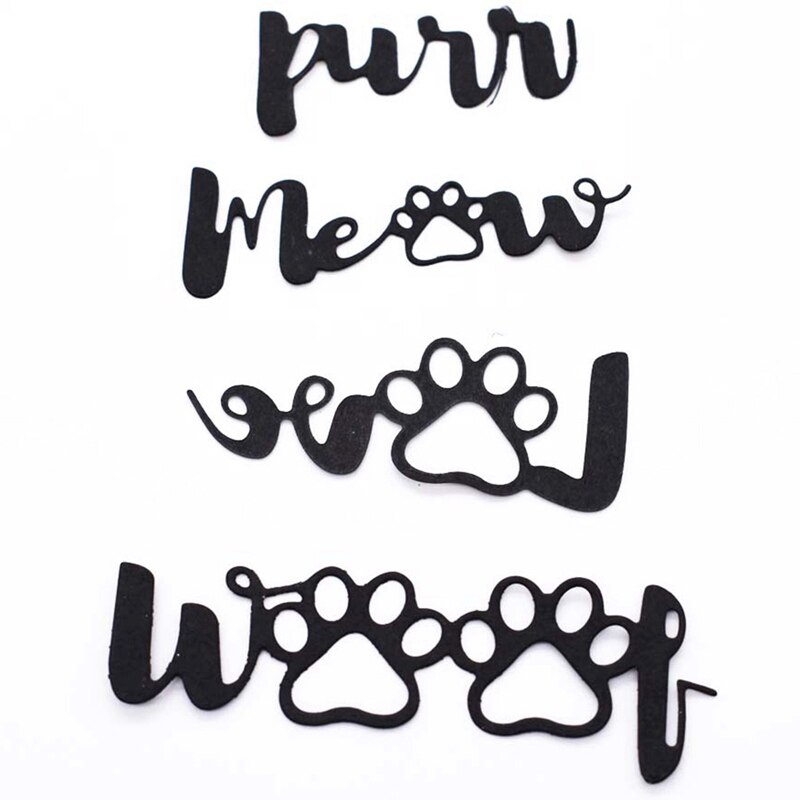 purr
Meow
Love
Woof